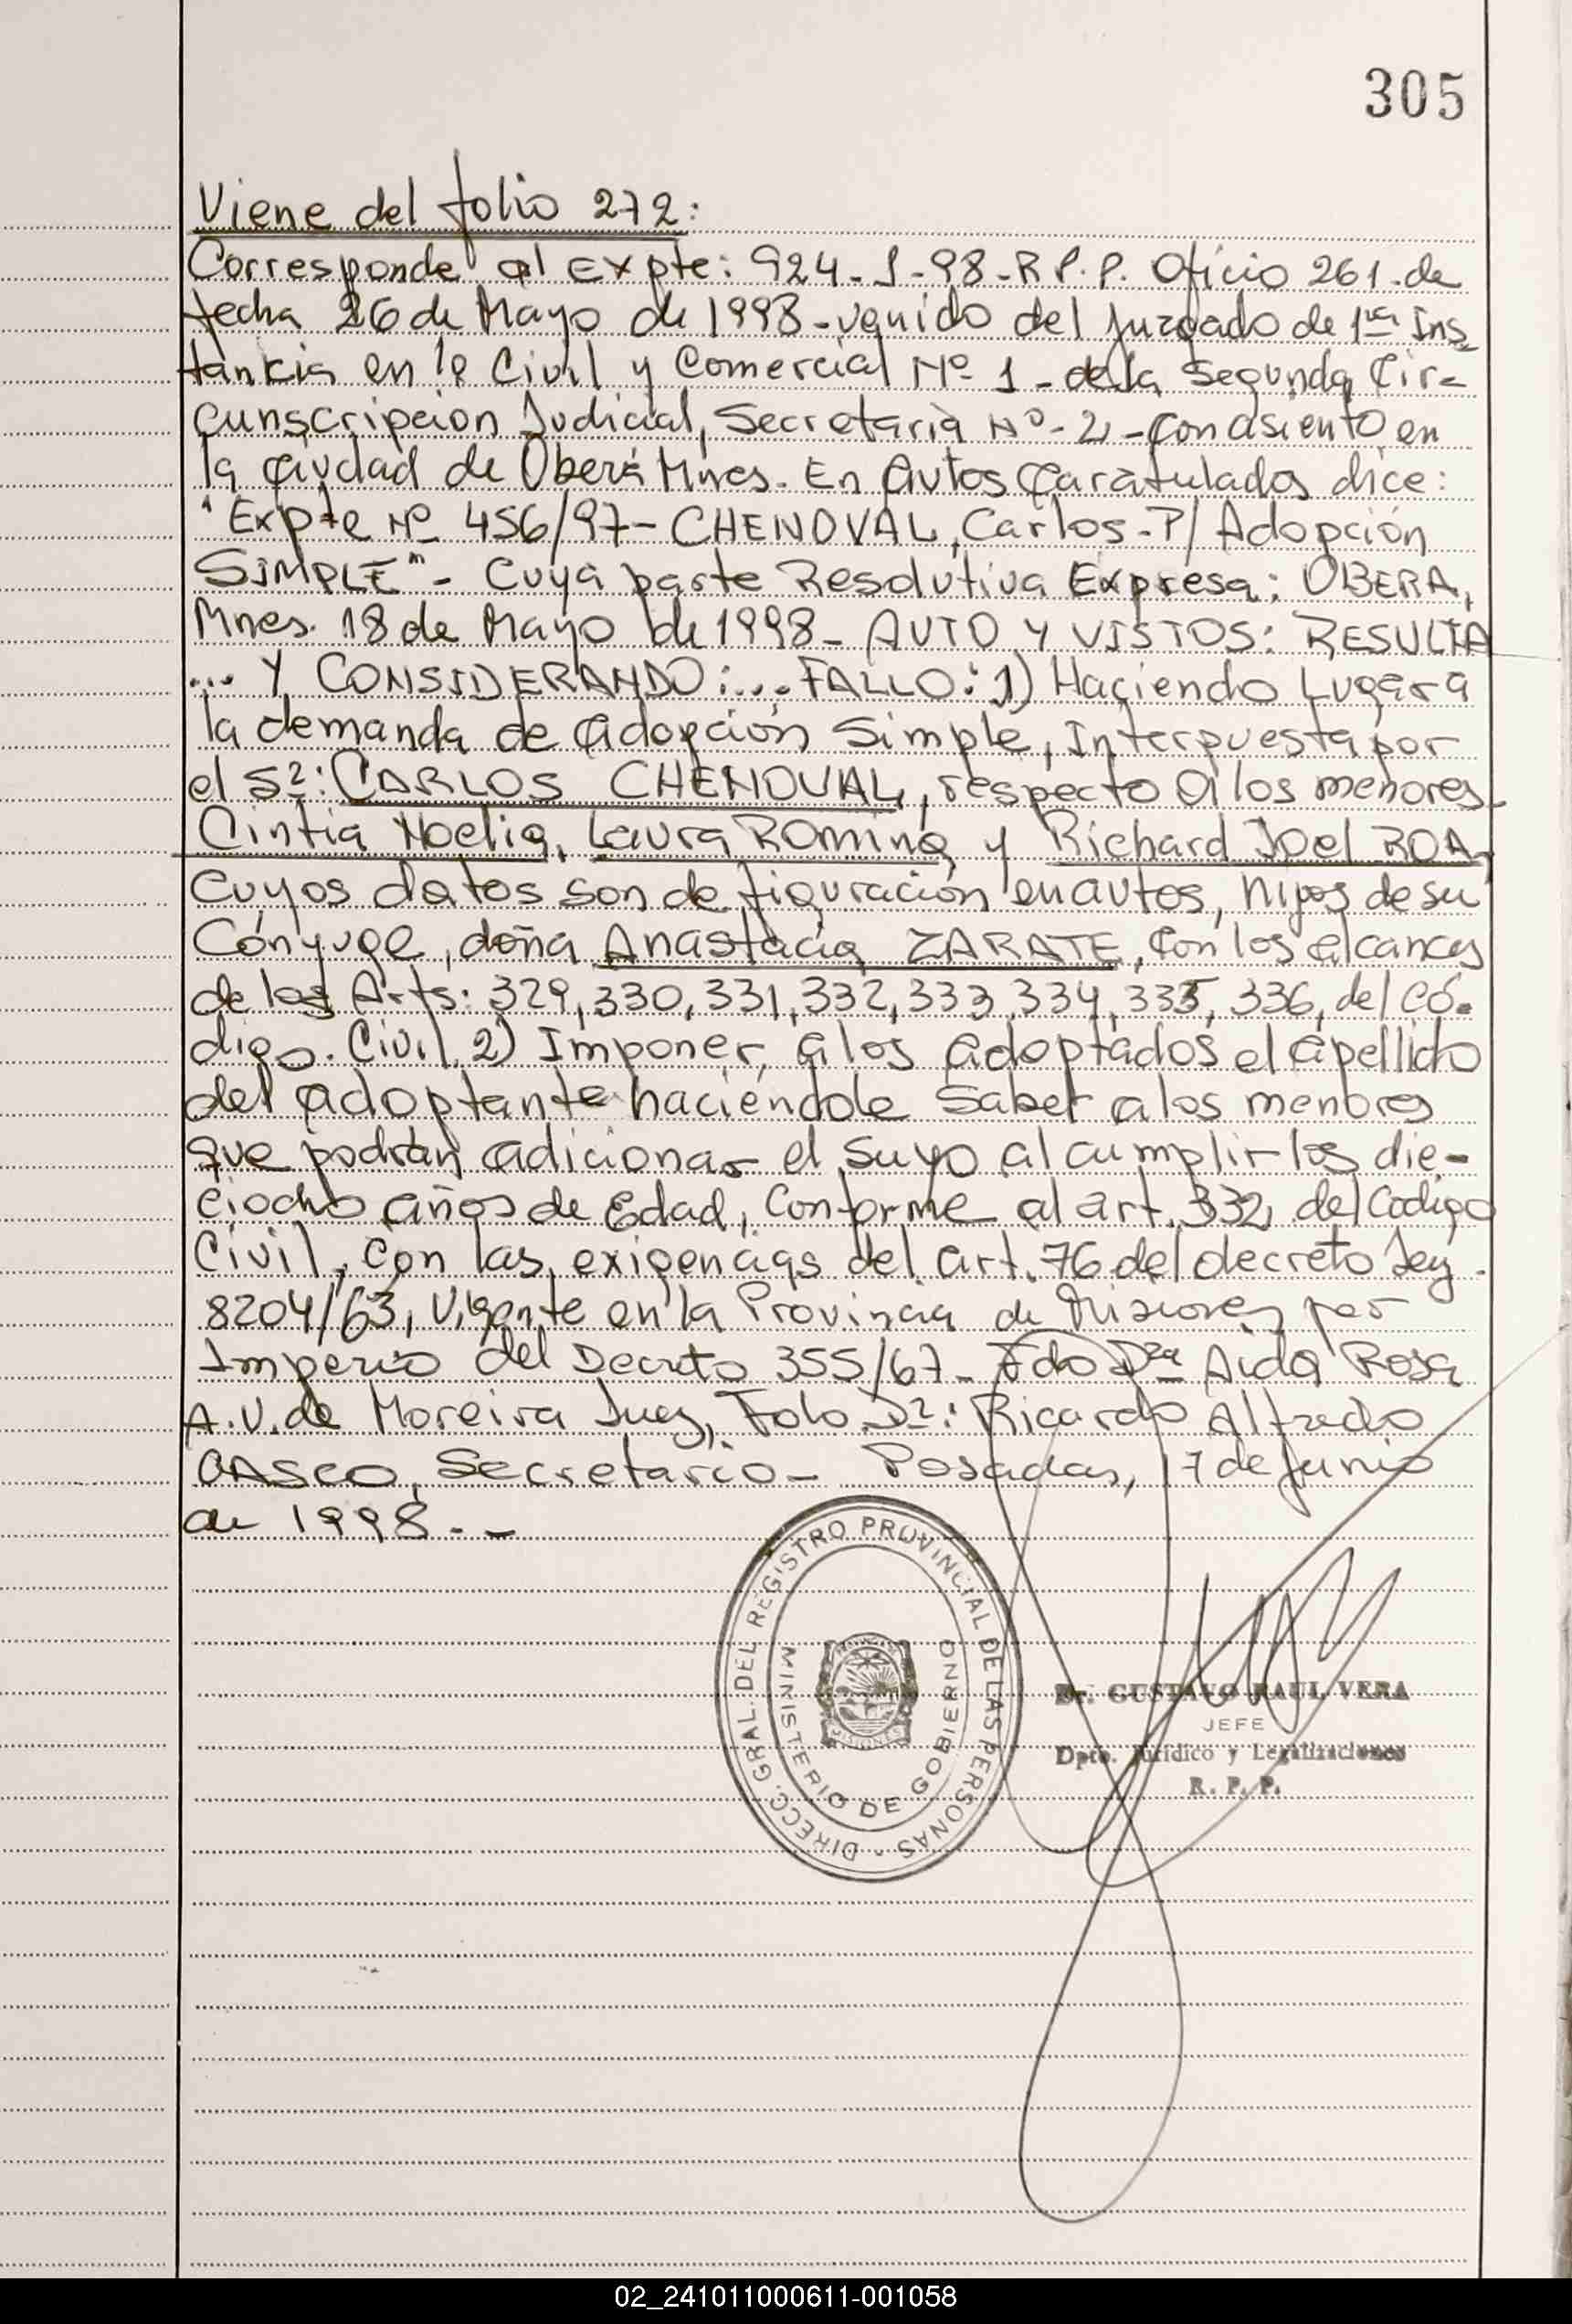 305
Viene del folio 272:
Corresponde al Expte: 924-J-98-R P.P. Oficio 261-de
fecha 26 de Mayo de 1998-venido del Juzgado de 1ra Ins
tancia en lo Civil y Comercial Nº 1-de la Segunda Cir-
cunscripcion Judicial, Secretaria Nº-2,-con asiento en
la ciudad de Oberá Mnes. En Autos caratulados dice:
"Expte Nº 456/97-CHENOVAL, Carlos-P/Adopción
SIMPLE"- Cuya parte Resolutiva Expresa: OBERA,
Mnes. 18 de Mayo de 1998-AUTO Y VISTOS: RESULTA
... Y CONSIDERANDO:... FALLO: 1) Haciendo Lugar a
la demanda de adopción Simple, Interpuesta por
el Sr: CARLOS CHENOVAL, respecto a los menores
Cintia Noelia, Laura ROmina y Richard Joel ROA,
cuyos datos son de figuración en autos, hijos de su
Cónyuge, doña Anastacia ZARATE, con los alcances
de los Arts: 329, 330, 331, 332, 333, 334, 335, 336, del Có-
digo. Civil. 2) Imponer, a los adoptados el apellido
del adoptante haciéndole Saber a los menores
que podrán adicionar el suyo al cumplir los die-
ciocho años de Edad, Conforme al art. 332, del Codigo
Civil, con las exigencias del art. 76 del decreto Ley
8204/63, Vigente en la Provincia de Misiones por
Imperio del Decreto 355/67- Fdo Dra Aida Rosa
A.V. de Moreira Juez, Fdo Dr: Ricardo Alfredo
CASCO, Secretario- Posadas, 17 de Junio
de 1998.-
DIRECC. GRAL. DEL REGISTRO PROVINCIAL DE LAS PERSONAS -
MINISTERIO DE GOBIERNO
MISIONES
Dr. GUSTAVO RAUL VERA
JEFE
Dpto. Jurídico y Legalizaciones
R. P. P.
02_241011000611-001058